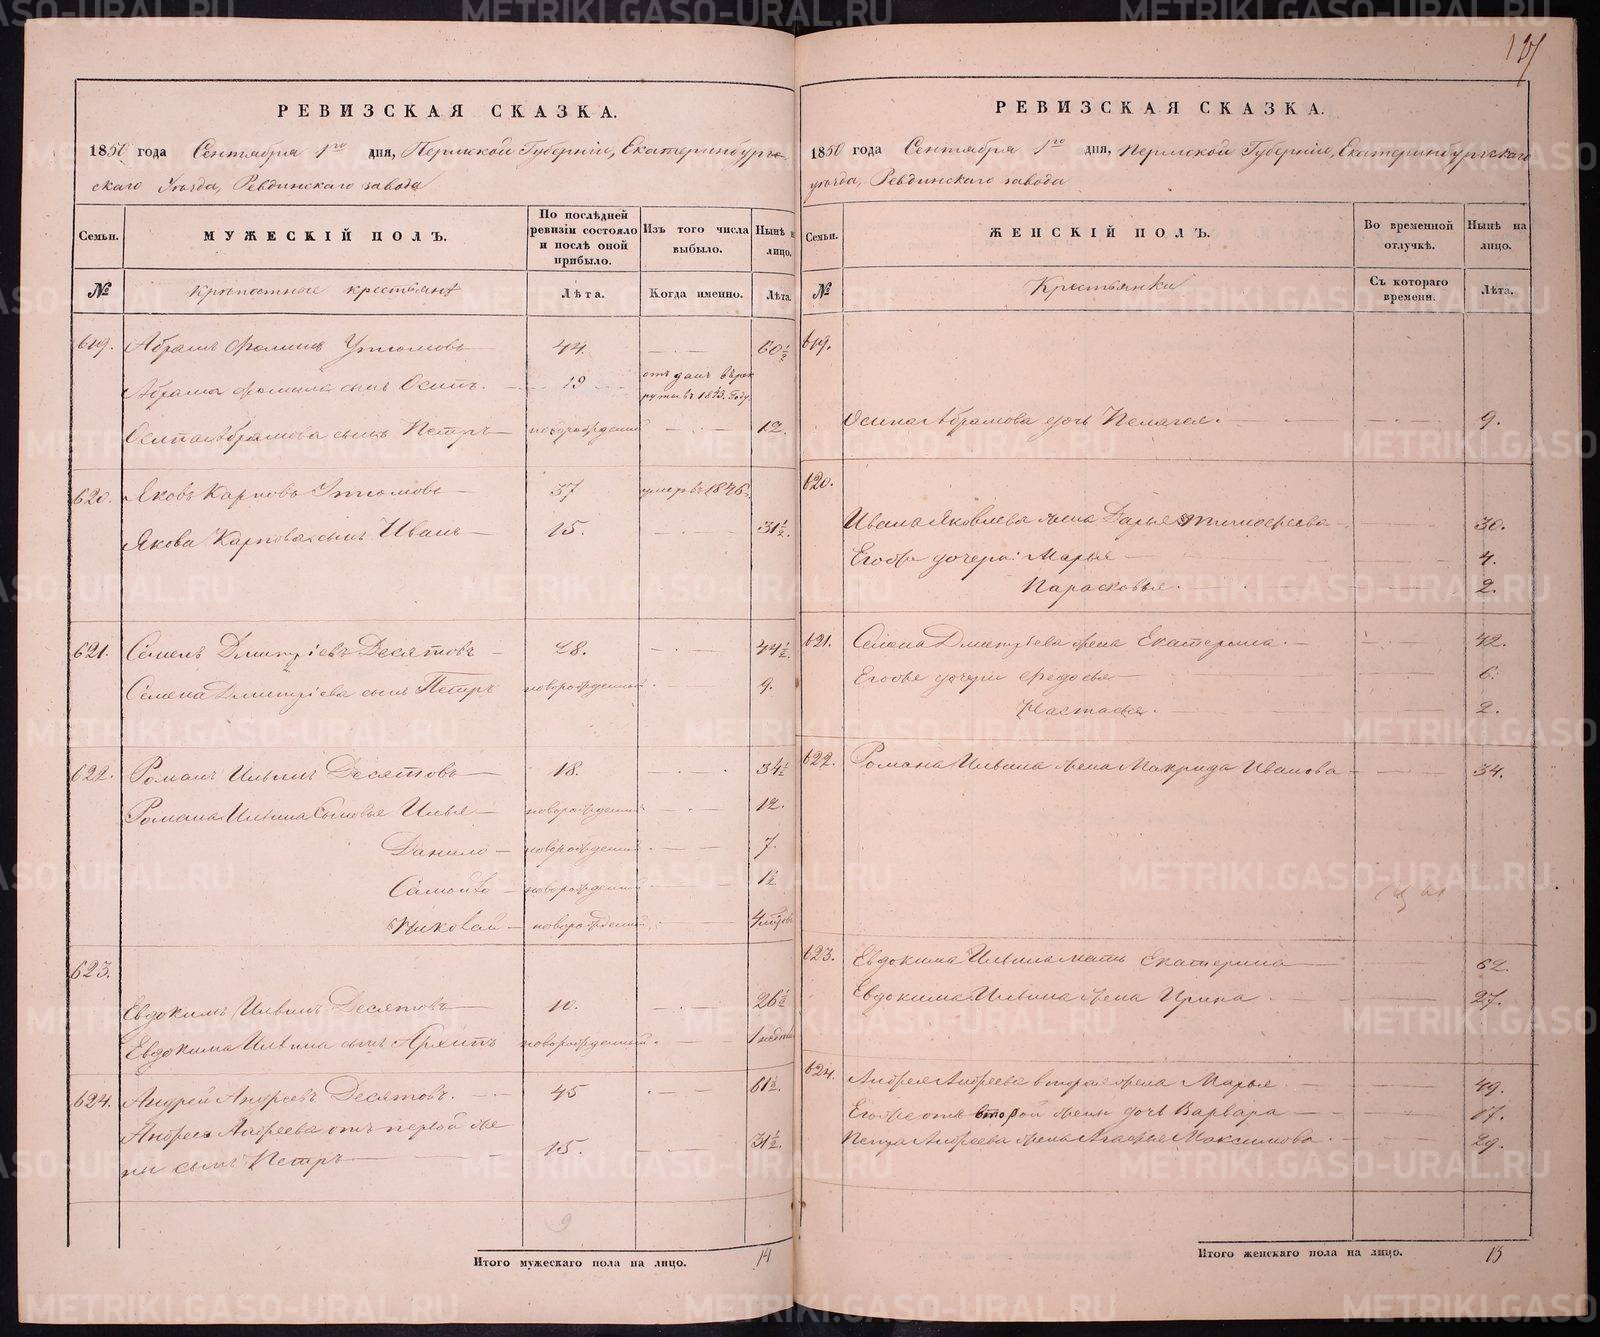 РЕВИЗСКАЯ СКАЗКА.
1850 года Сентября 1го дня, Пермской Губернiи, Екатеринбург-
скаго Уѣзда, Ревдинскаго завода
Семьи. МУЖЕСКIЙ ПОЛЪ. По послѣдней ревизiи состояло и послѣ оной прибыло. Изъ того числа выбыло. Нынѣ на лицо.
№ Крѣпостные крестьяне Лѣта. Когда именно. Лѣта.
619. Абрамъ Фоминъ Утюмовъ 44. 60½
Абрама Фомина сынъ Осипъ. 19 отданъ въ рек
руты въ 1843. Году
Осипа Абрамова сынъ Петръ новорожденный 12.
620. Яковъ Карповъ Утюмовъ 37 умеръ 1846
Якова Карпова сынъ Иванъ 15. 31½
621. Семенъ Дмитрiевъ Десятовъ 28. 44½
Семена Дмитрiева сынъ Петръ новорожденный 9.
622. Романъ Ильинъ Десятовъ 18. 34½
Романа Ильина Сыновья Илья новорожденный 12.
Данило новорожденный 7.
Самойло новорожденный 1½
Николай новорожденный 4
623.
Евдокимъ Ильинъ Десятовъ 10. 26½
Евдокима Ильина сынъ Архипъ новорожденный 1
624. Андрей Андреевъ Десятовъ. 45 61½
Андрея Андреева отъ первой же
ны сынъ Петръ 15. 31½
9
Итого мужескаго пола на лицо. 14
РЕВИЗСКАЯ СКАЗКА.
1850 года Сентября 1го дня, Пермской Губернiи, Екатеринбургскаго
уѣзда, Ревдинскаго завода
Семьи. ЖЕНСКIЙ ПОЛЪ. Во временной отлучкѣ. Нынѣ на лицо.
№ Крестьянки Съ котораго времени. Лѣта.
619.
Осипа Абрамова дочь Пелагея. 9.
620.
Ивана Яковлева жена Дарья Тимофеева 30.
Егожъ дочери: Марья 4.
Парасковья. 2.
621. Семена Дмитрiева жена Екатерина. 42.
Егожъ дочери Федосья 6.
Настасья. 2.
622. Романа Ильина жена Макрида Иванова 34.
623. Евдокима Ильина мать Екатерина 62.
Евдокима Ильина жена Ирина 27.
624. Андрея Андреева вторая жена Марья 49.
Егоже отъ второй жены дочь Варвара 17.
Петра Андреева жена Агафья Максимова 29.
Итого женскаго пола на лицо. 13
METRIKI.GASO-URAL.RU